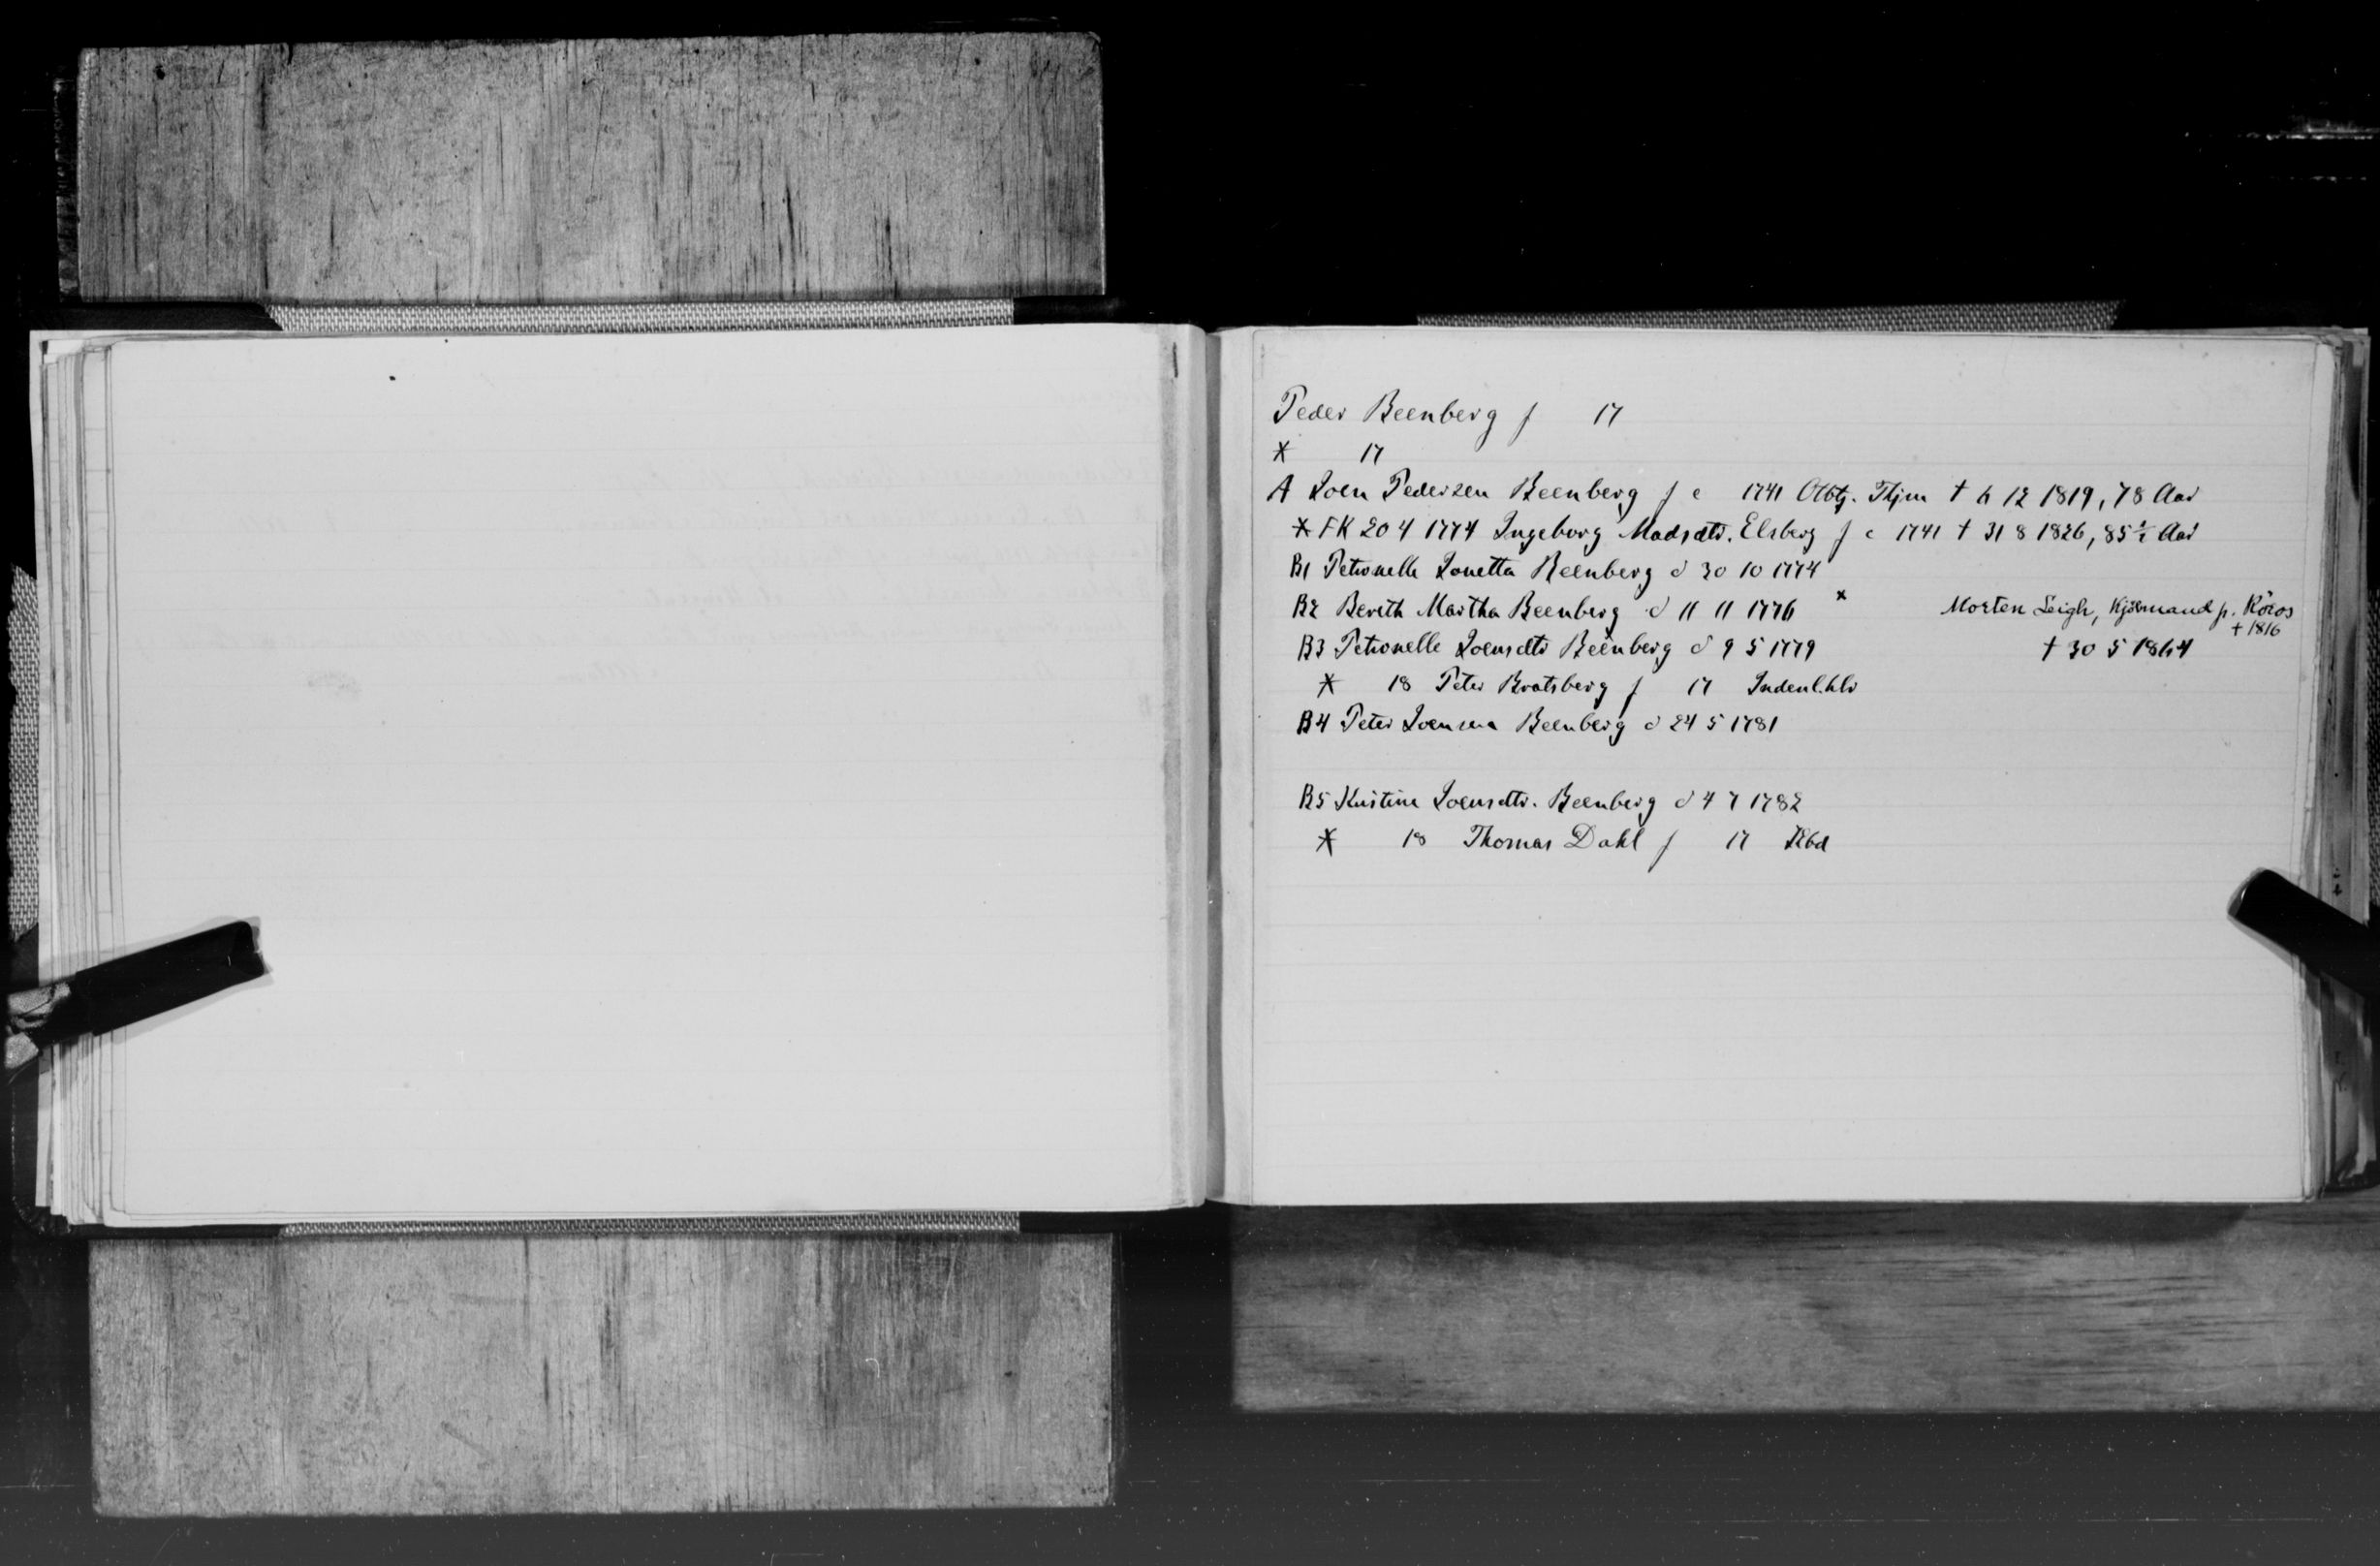 Peder Beenberg f 17
* 17
A Joen Pedersen Beenberg f c 1741 Olbtj. Thjm † 6 12 1819, 78 Aar
* FK 20 4 1774 Ingeborg Madsdtr. Elsberg f c 1741 † 31 8 1826, 85½ Aar
B1 Petronelle Jonetta Beenberg d 30 10 1774
B2 Bereth Martha Beenberg d 11 11 1776 * Morten Leigh, Kjöbmand p. Röros † 1816
B3 Petronelle Joensdtr Beenberg d 9 5 1779 † 30 5 1864
* 18 Peter Bratsberg f 17
B4 Peter Joensen Beenberg d 24 5 1781
B5 Kristine Joensdtr. Beenberg d 4 7 1782
* 18 Thomas Dahl f 17